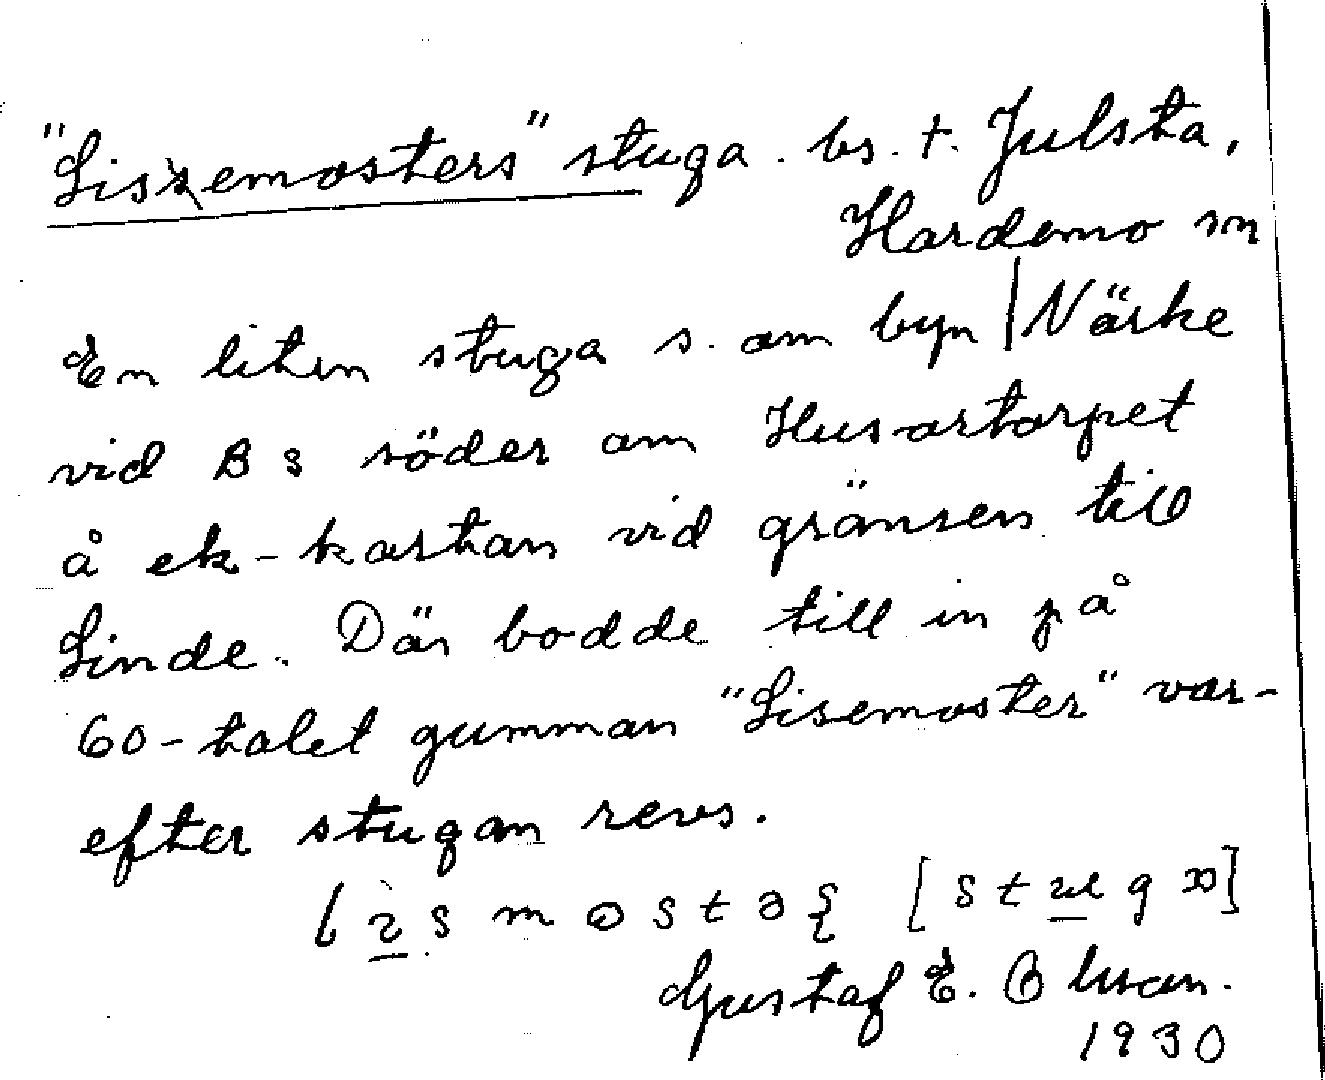 "Lisemosters" stuga. bs. t. Julsta,
Hardemo sn
En liten stuga s. om byn | Närke
vid B 3 söder om Husartorpet
å ek-kartan vid gränsen till
Linde. Där bodde till in på
60-talet gumman "Lisemoster" var-
efter stugan revs.
Gustaf E.
1930